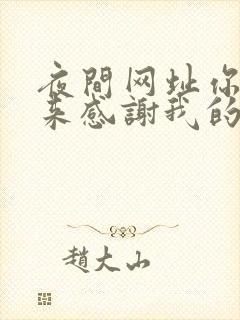 夜間网址你
来感謝我的
趙大山